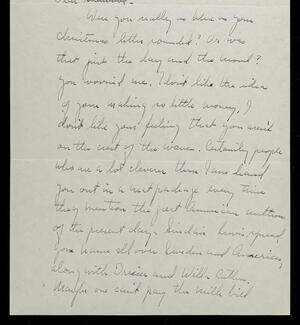 Were you really as blue as your
Christmas letter sounded? Or was
that just the day and the mood?
You worried me. I don't like the idea
of your making so little money, I
don't like your feeling that you aren't
on the crest of the waves. Certainly people
who are a lot cleverer than I am hand
you out in a neat package every time
they mention the great American authors
of the present day. Sinclair Lewis spread
your name all over Sweden and America,
along with Dreiser and Willa Cather.
Maybe one can't pay the milk bill